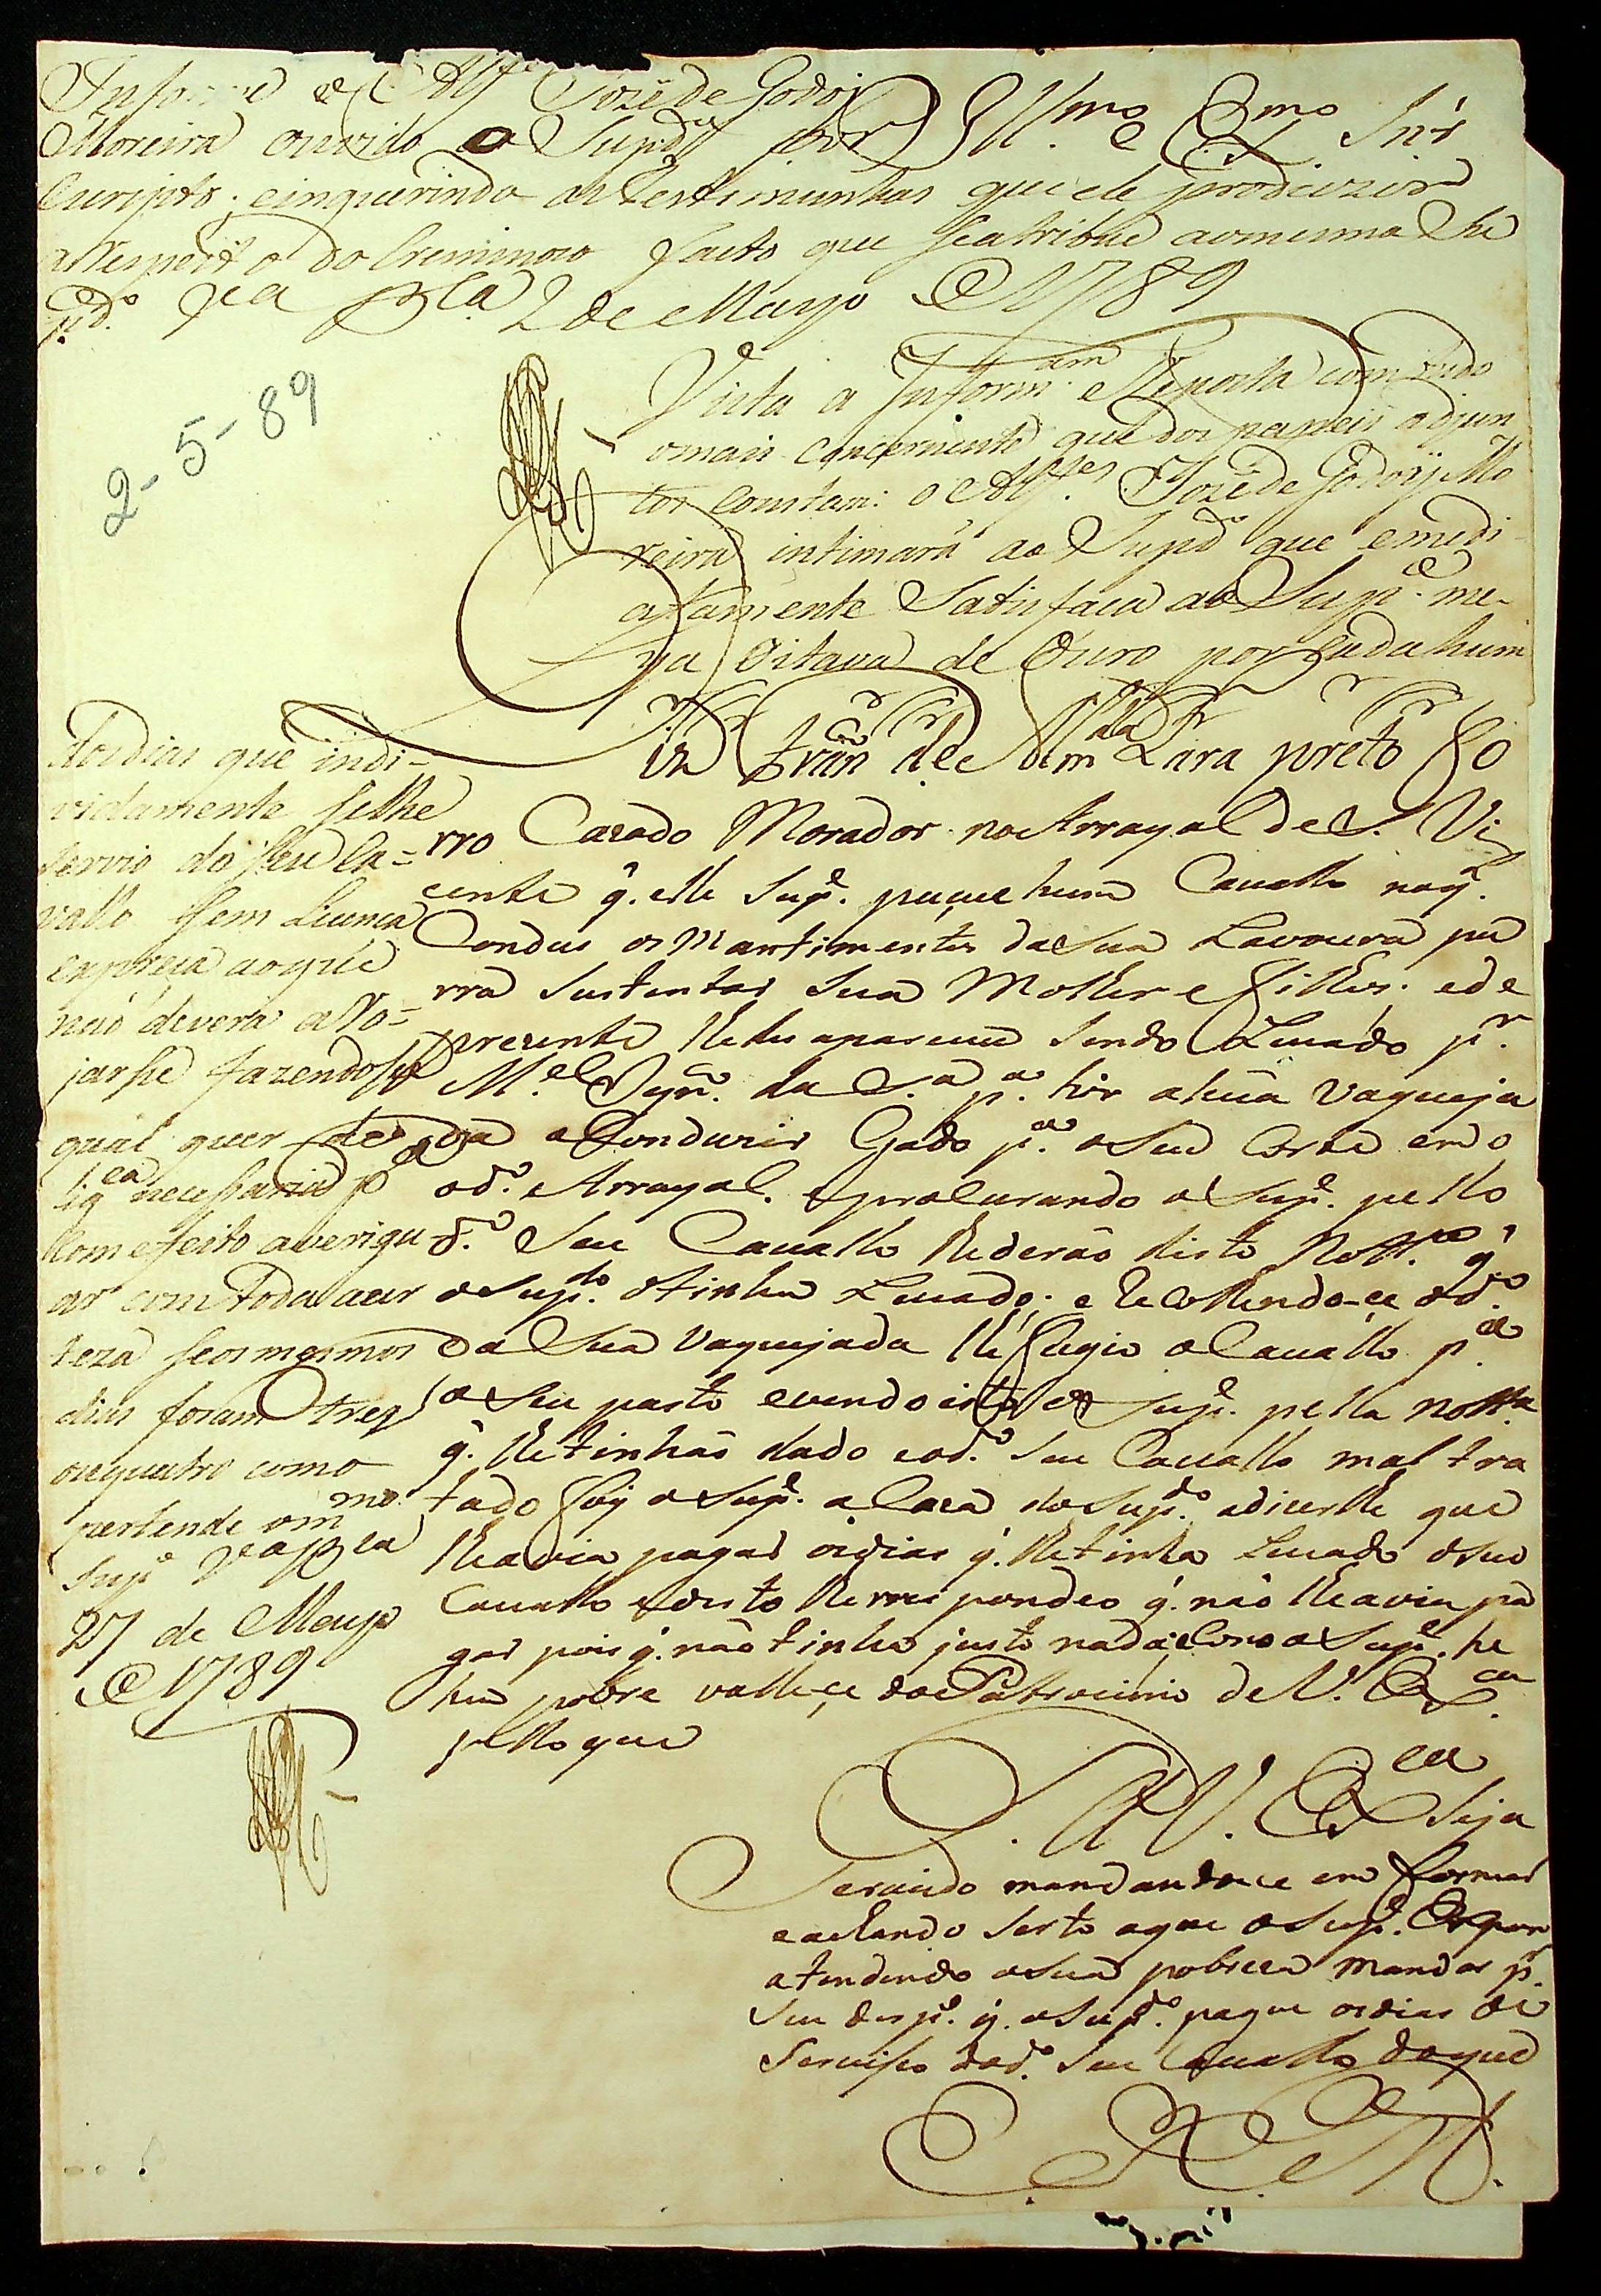 Informe o Alfs Jozé de Godoi
Moreira ouvido o Supdo por
Escripto; einquirindo as testimunhas que ele produzir
arespeito do Creminozo facto que seatribue aomesmo Su
pdo. Va Bla 2 de Mayo @ 1789
Illmo. e Exmo. Snr
2-5-89
Vista a Informam. e Reposta com tudo
omais concernente que dos papeis adjun
tos Constam: o Alfes. Jozé de Godoÿ Mo
reira intimará ao Supdo que emedi-
atamente Satisfaça ao Supe. me-
ya Oitava de Ouro por Cada hum
dos dias que indi-
vidamente selhe
servio do seu Ca=
vallo sem Licença
expreça aoque
naõ devera arro=
jarse fazendosse
qual quer de
liga necessaria pa
Com efeito averigu
ar com toda acer
teza seosmesmos
dias foram trez
ouquatro como
pertende ommo.
Supe Va Bla
27 de Mayo
@ 1789
Diz Fran.co de Alm.da Lara preto fo
rro Cazado Morador no Arrayal de S. Vi
cente q. elle Supe. pucue hum Cauallo noq.
Condus os mantimentos da Sua Lavoura pa
rra sustentar sua Molher e filhos; ede
prezente lhe dezapareceu sendo Leuado pr.
Mel. Dyn.o da Sa. pa. hir ahua vaqueja
da a Conduzir Gado pa. o Seu Corte em o
do. Arrayal. e procurando o Supe. pello
do. Seu Cauallo lhederão disto Notta. q'
o Supdo. otinha Leuado; e Recolhendo-ce odo.
da Sua vaquejada lhe fugio o Cauallo pa.
o Seu pasto evendo isto o Supe. pella notta.
q. lhetinhão dado eodo. Seu Cauallo mal tra
tado foÿ o Supe. a Caza do Supdo. adizerlhe que
lheavia pagar osdias q. lhetinha Leuado oseu
Cauallo edisto lhe rrespondeo q. não lheavia pa
gar pois q. não tinha justo nada; Como o Supe. he
hum pobre valle-ce do Patrocinio de V. Exca.
pello que
P. a V. Exca Seja
Seruido mandando-ce em formar
eachando serto aque o Supe. Expoem
atendendo asua pobreza mandar pr.
Seu despo. q. o Supdo. pague osdias de
Seruiso dodo. Seu Cauallo doque
E. R. Mce.